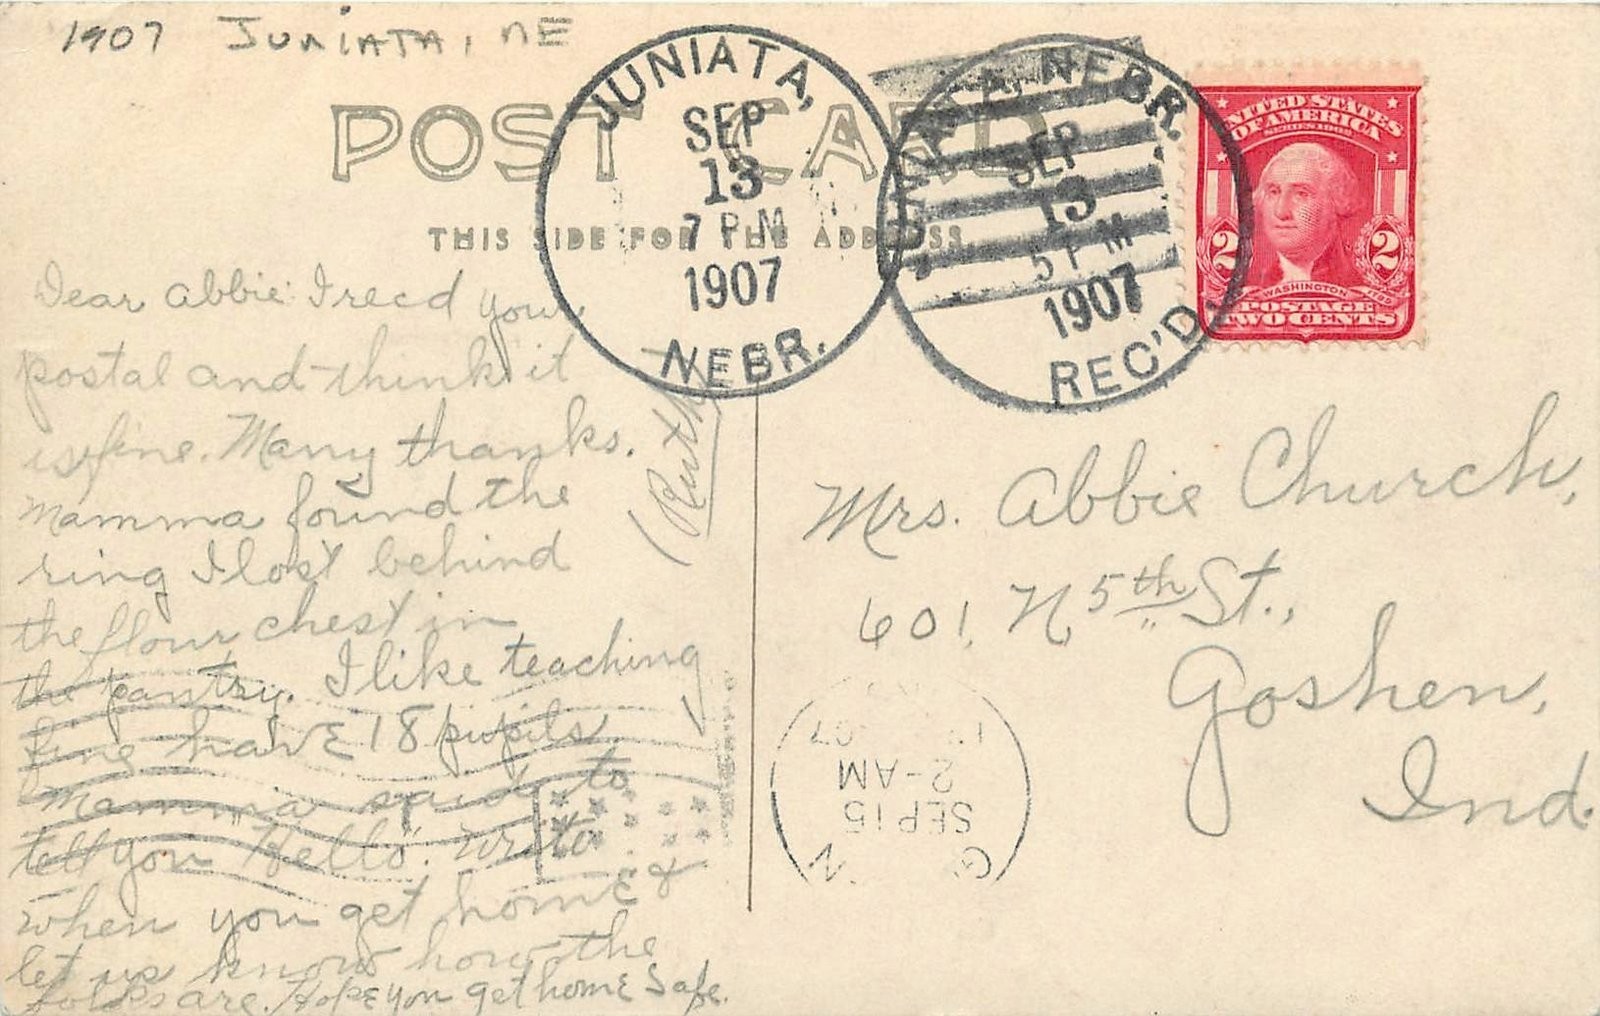 1907 JUNIATA, NE
POST CARD
THIS SIDE FOR THE ADDRESS.
JUNIATA,
SEP
13
7 PM
1907
NEBR.
NEBR.
SEP
13
5 PM
1907
REC'D.
UNITED STATES
OF AMERICA
SERIES 1902
2 2
WASHINGTON
POSTAGE
TWO CENTS
Dear Abbie: I recd your
postal and think it
is fine. Many thanks.
Mamma found the
ring I lost behind
the flour chest in
the pantry. I like teaching
fine have 18 pupils.
Mamma said to
tell you "Hello". Write
when you get home &
let us know how the
folks are. Hope you get home safe.
Ruth
Mrs. Abbie Church,
601, N 5th St.,
Goshen,
Ind.
G N
SEP 15
2-AM